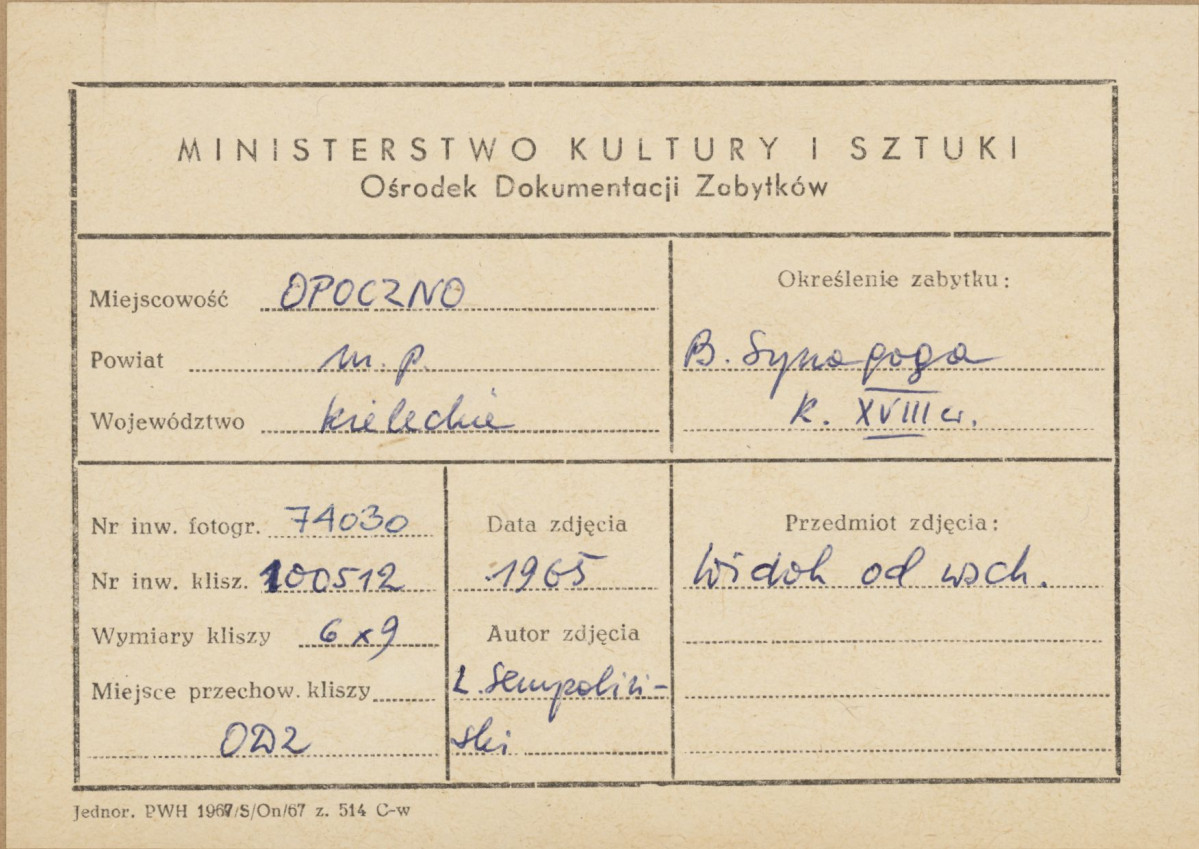 MINISTERSTWO KULTURY I SZTUKI
Ośrodek Dokumentacji Zabytków
Miejscowość OPOCZNO
Powiat m. p.
Województwo kieleckie
Określenie zabytku:
B. Synagoga
k. XVIII w.
Nr inw. fotogr. 74030
Nr inw. klisz. 100512
Wymiary kliszy 6 x 9
Miejsce przechow. kliszy
ODZ
Data zdjęcia
1965
Autor zdjęcia
L. Sempoliń-
ski
Przedmiot zdjęcia:
Widok od wsch.
Jednor. PWH 1967/S/On/67 z. 514 C-w